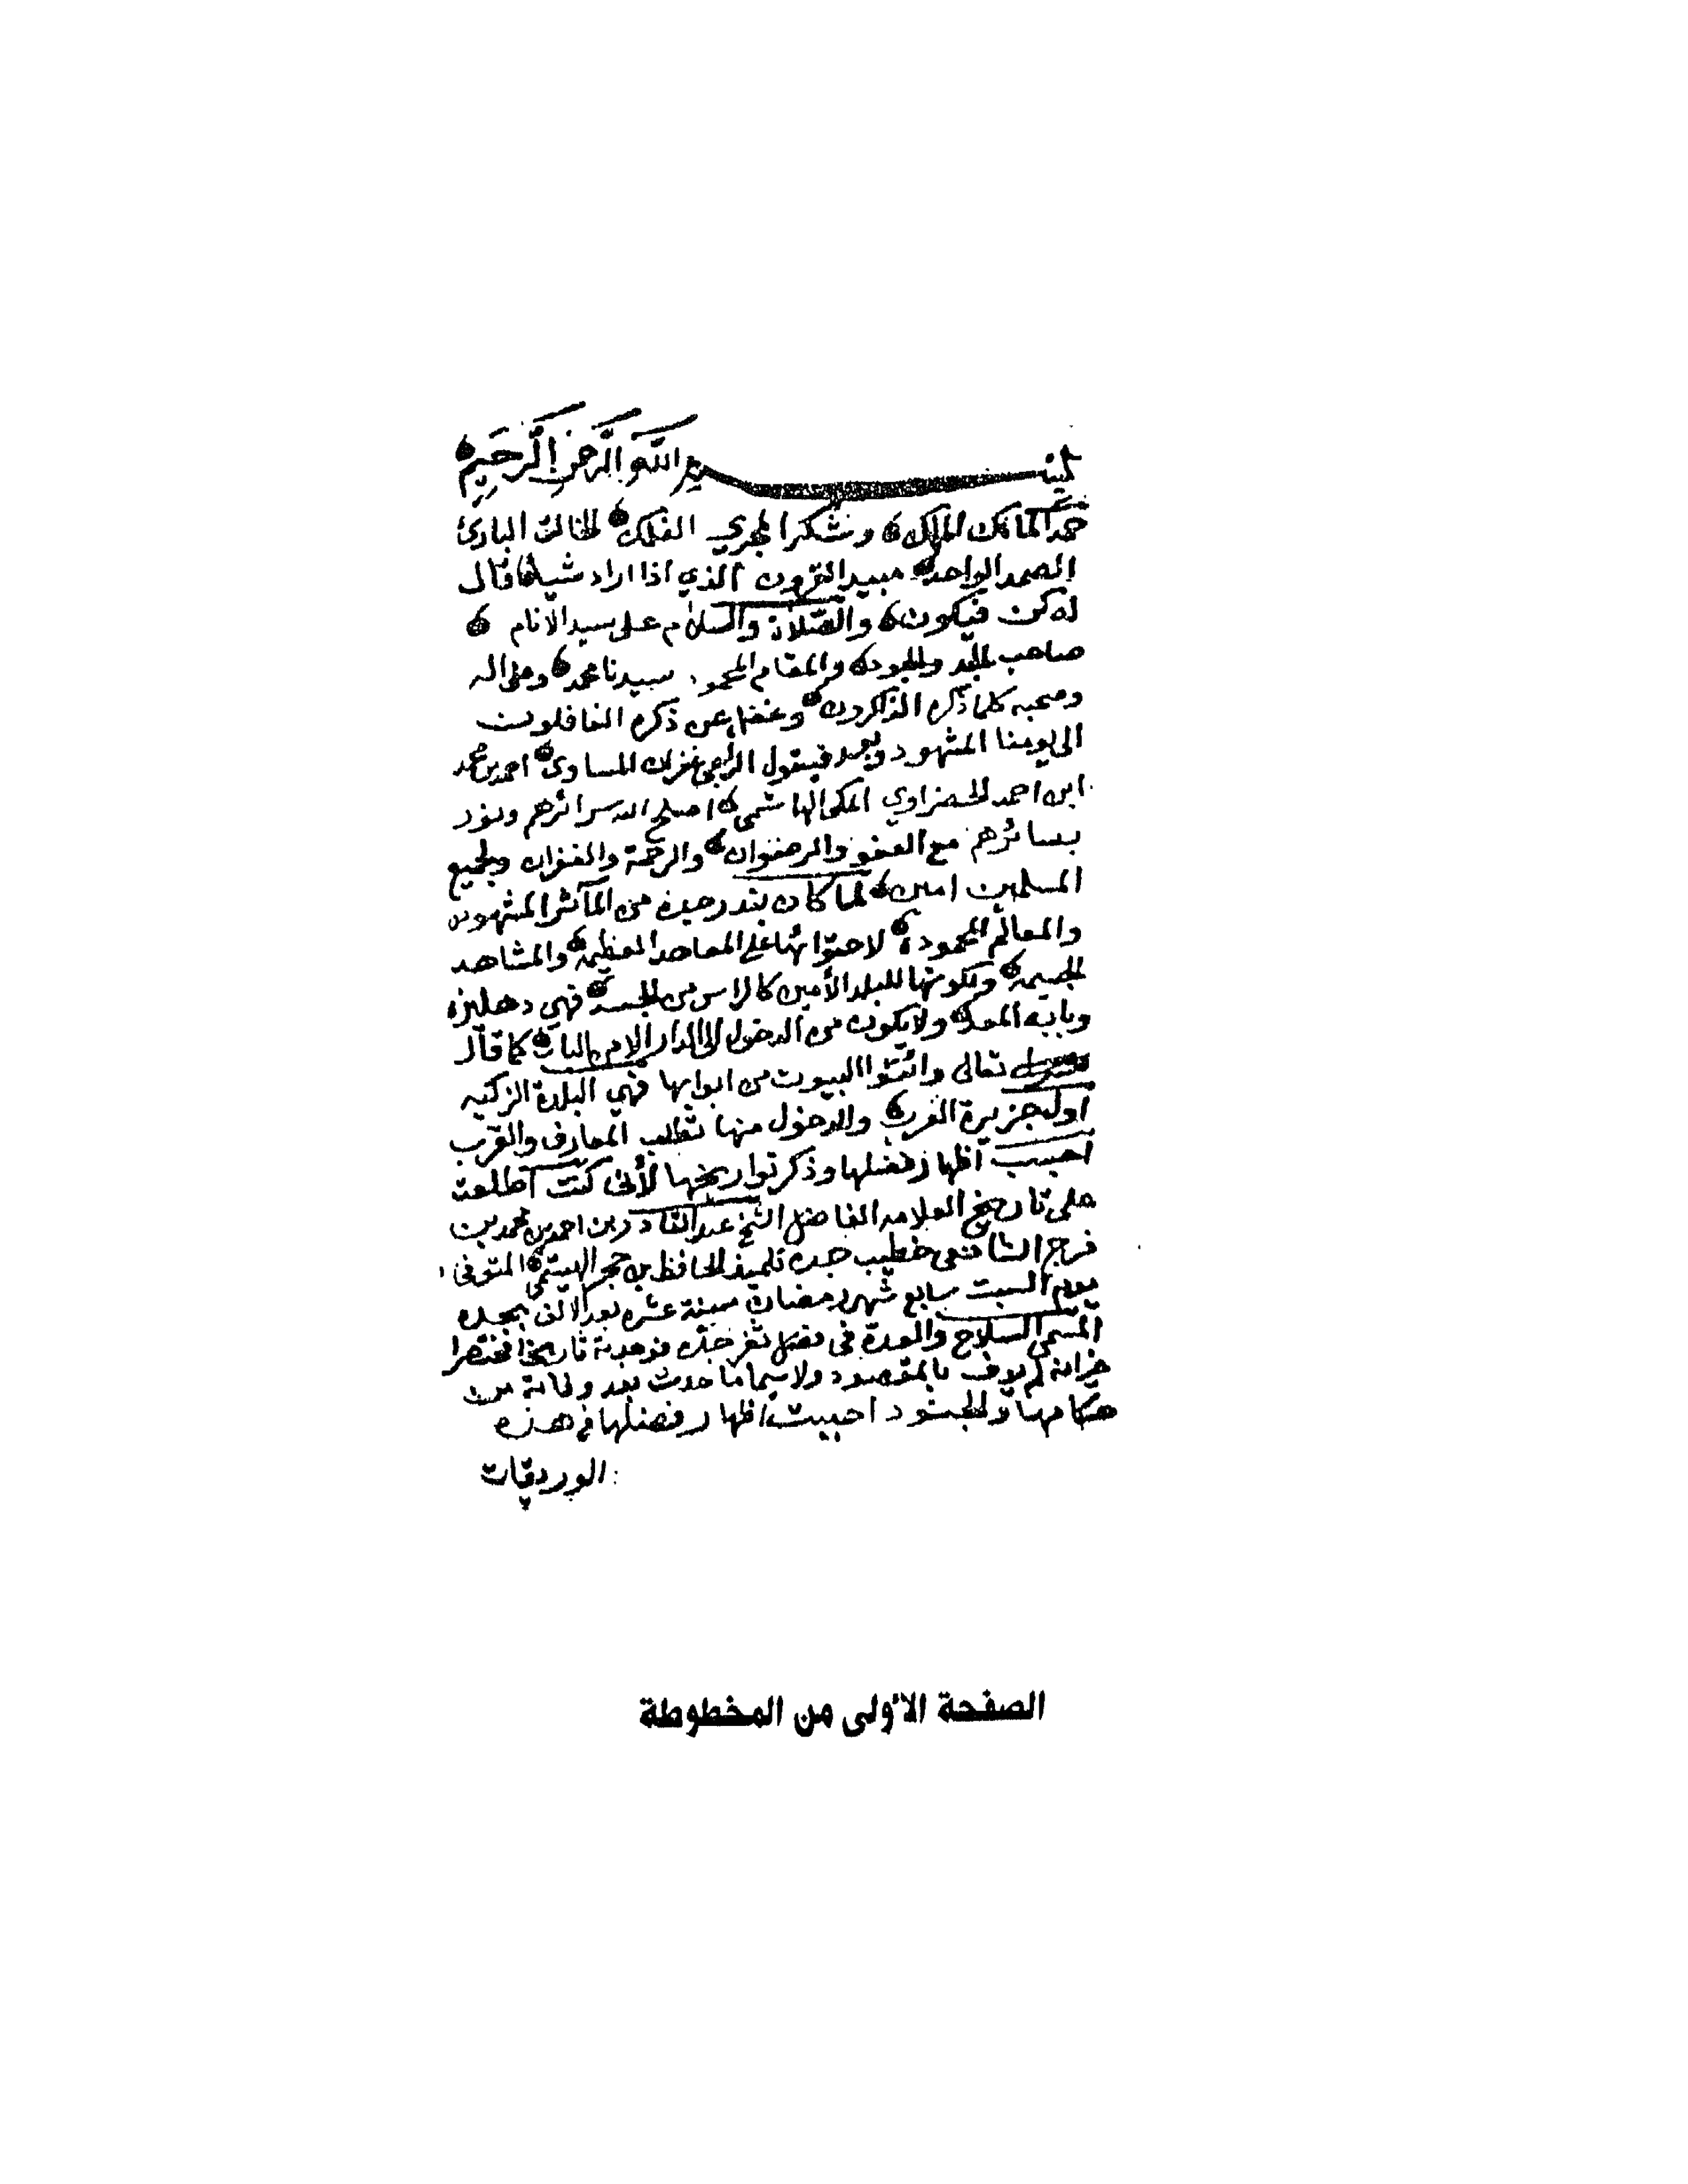 بسم الله الرحمن الرحيم
حمدا لمالك الملك وشكرا لمجري الفلك الخالق البارئ
الصمد الواحد مبيد القرون الذي اذا اراد شيئا قال
له كن فيكون والصلاة والسلام على سيد الانام
صاحب المجد والجود والمقام المحمود سيدنا محمد وعلى اله
وصحبه كلما ذكره الذاكرون وغفل عن ذكره الغافلون
الى يومنا المشهود وبعد فيقول الراجي غفران المساوي احمد بن محمد
ابن احمد الحضراوي المكي الهاشمي اصلح الله سرائرهم ونور
بصائرهم مع العفو والرضوان والرحمة والغفران ولجميع
المسلمين امين لما كان بندر جدة من المآثر المشهورة
والمعالم المحمودة لاحتوائها على المعاهد العظيمة والمشاهد
الجسيمة ولكونها للبلد الأمين كالراس من الجسد فهي دهليزه
وبابه المعد ولا يكون من الدخول الى الدار الا من الباب كما قال
تعالى وائتوا البيوت من ابوابها فهي البلدة الزكيه
اول جزيرة العرب والدخول منها لطلب المعارف والقرب
احببت اظهار فضلها وذكر تواريخها لأني كنت اطلعت
على تاريخ العلامه الفاضل الشيخ عبد القادر بن احمد بن محمد بن
فرج الشافعي خطيب جده تلميذ الحافظ بن حجر الهيتمي المتوفى
يوم السبت سابع شهر رمضان سنة عشره بعد الالف بجده
المسمى السلاح والعدة في فضل ثغر جده فوجدته تاريخا مختصرا
غير انه لم يوف بالمقصود ولا سيما ما حدث بعد وفاته من
حكامها والجنود احببت اظهار فضلها في هذه
الوريقات
الصفحة الأولى من المخطوطة